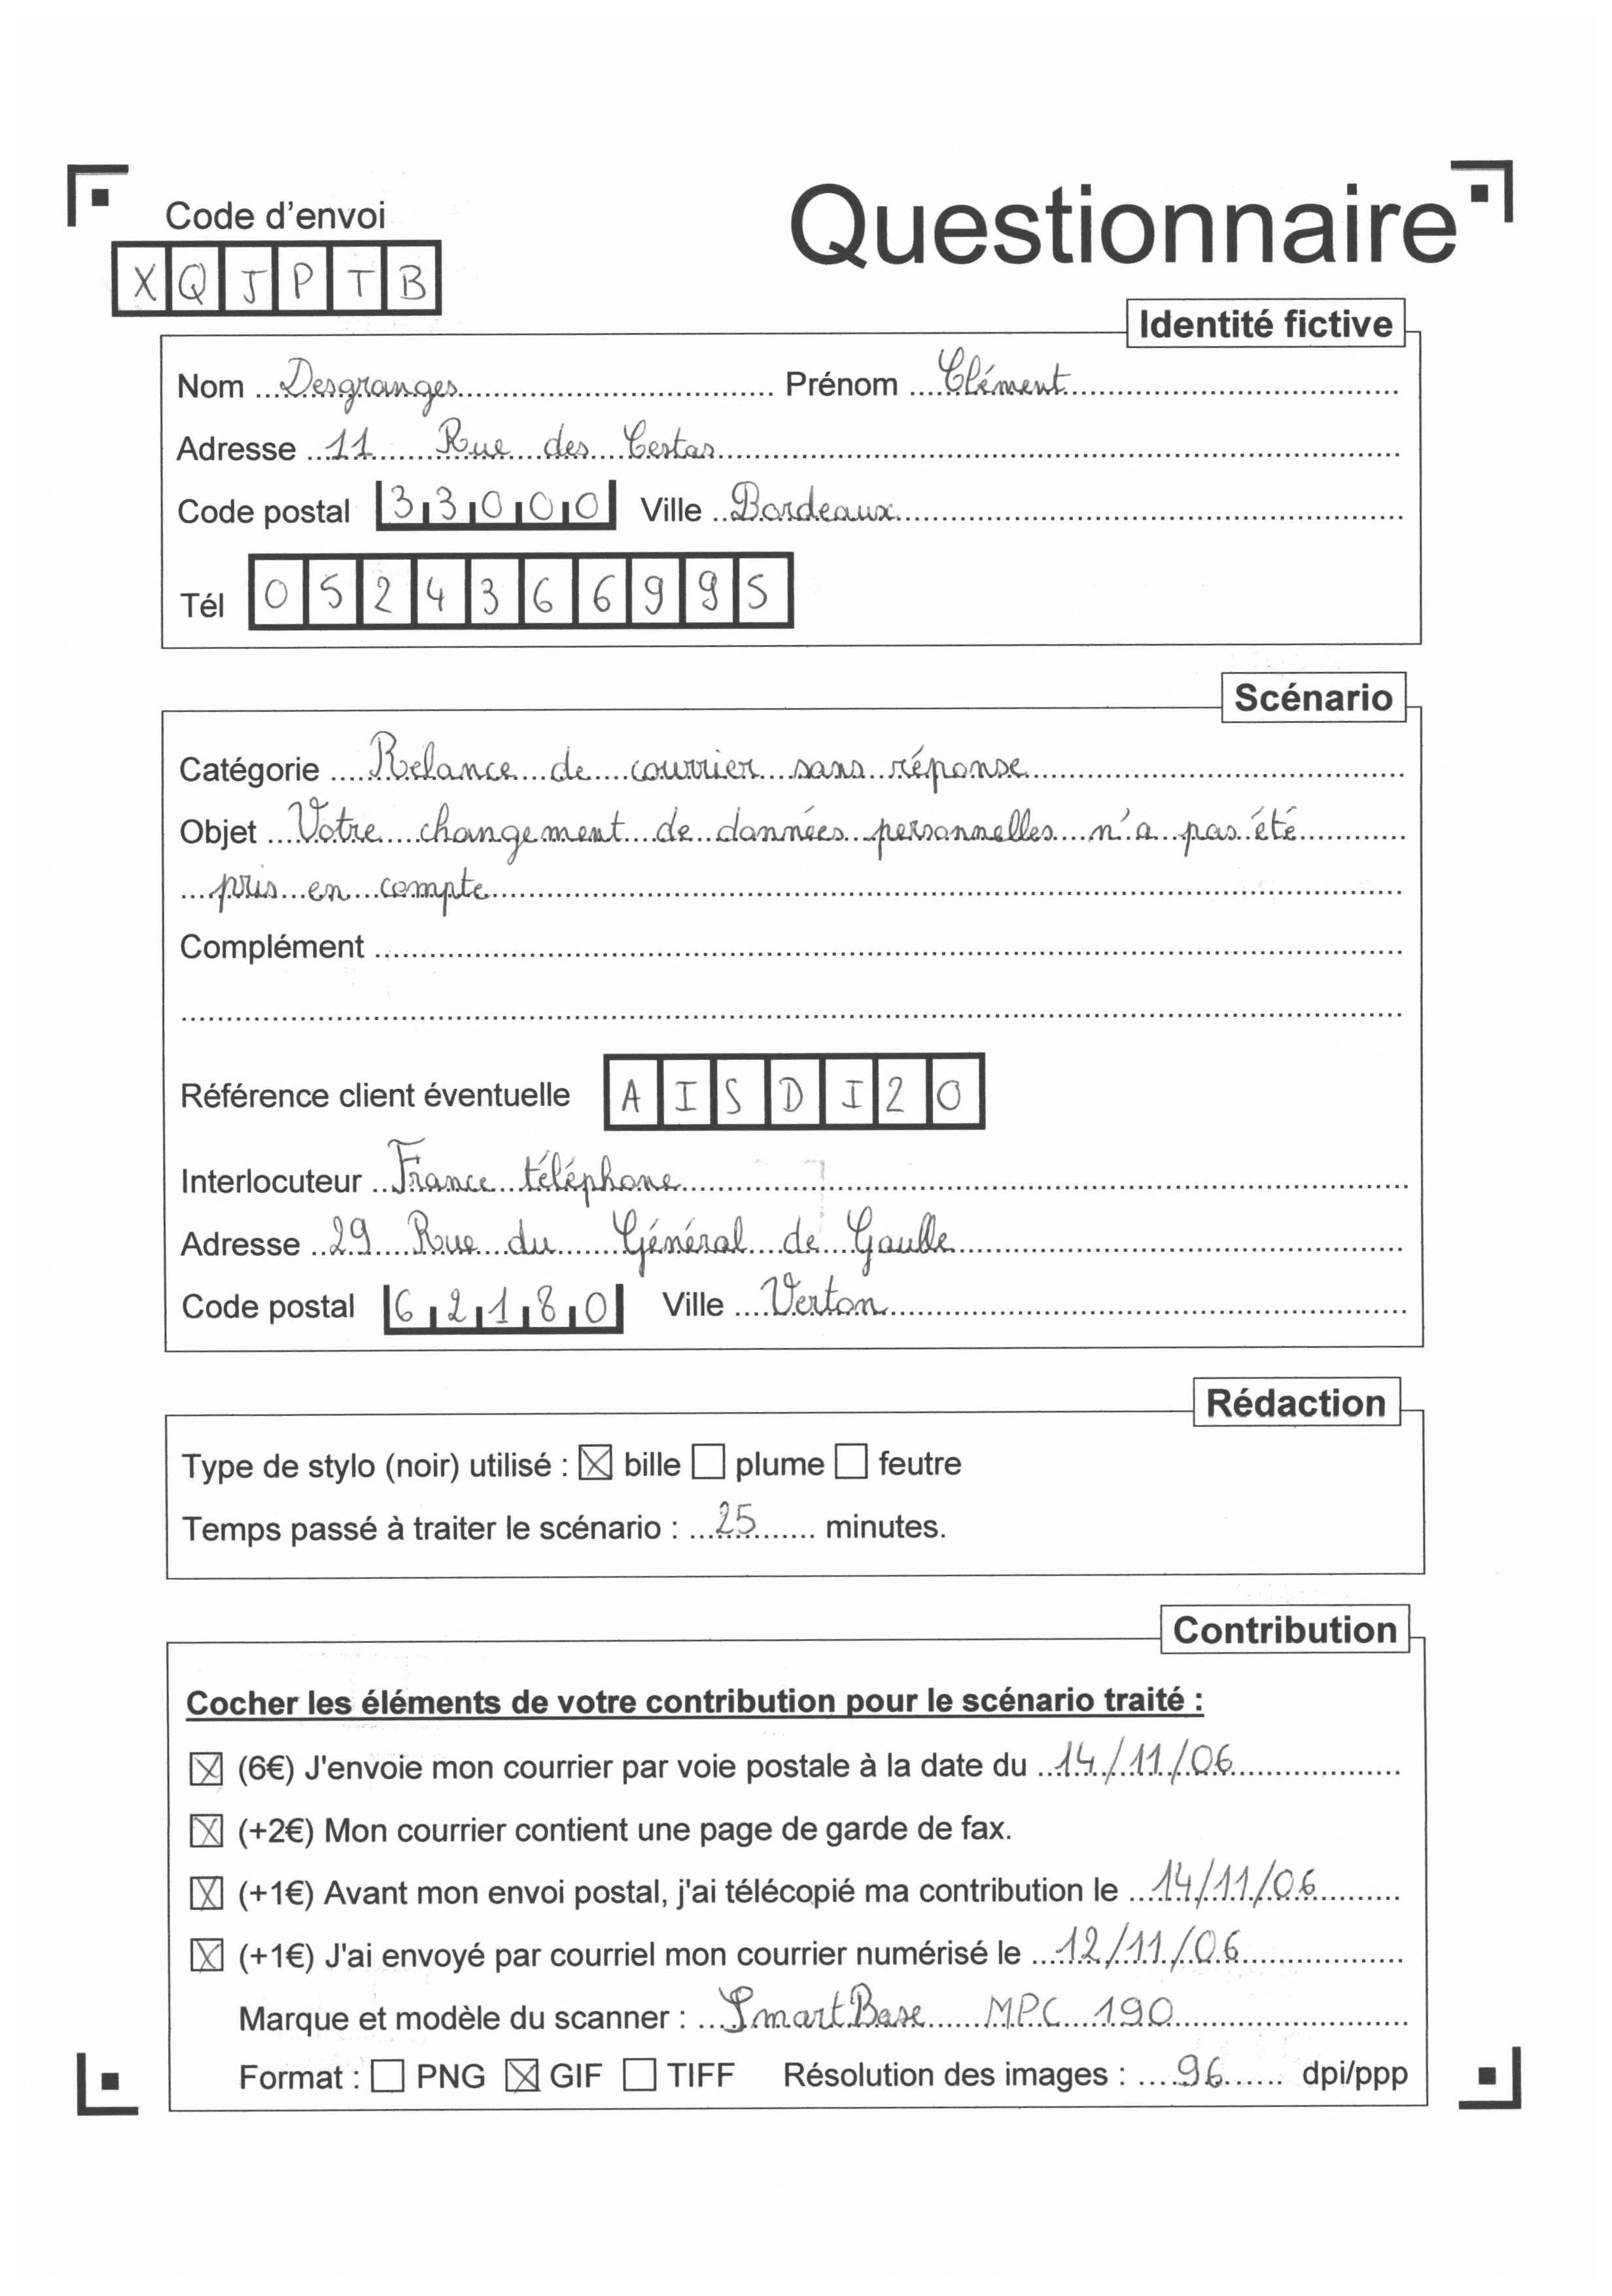 Code d'envoi
Questionnaire
X Q J P T B
Identité fictive
Nom Desgranges Prénom Clément
Adresse 11 Rue des Cestas
Code postal 33000 Ville Bordeaux
Tél 0524366995
Scénario
Catégorie Relance de courrier sans réponse
Objet Votre changement de données personnelles n'a pas été
pris en compte
Complément
Référence client éventuelle A I S D I 2 0
Interlocuteur France téléphone
Adresse 29 Rue du Général de Gaulle
Code postal 62180 Ville Verton
Rédaction
Type de stylo (noir) utilisé : ☒ bille ☐ plume ☐ feutre
Temps passé à traiter le scénario : 25 minutes.
Contribution
Cocher les éléments de votre contribution pour le scénario traité :
☒ (6€) J'envoie mon courrier par voie postale à la date du 14/11/06
☒ (+2€) Mon courrier contient une page de garde de fax.
☒ (+1€) Avant mon envoi postal, j'ai télécopié ma contribution le 14/11/06
☒ (+1€) J'ai envoyé par courriel mon courrier numérisé le 12/11/06
Marque et modèle du scanner : SmartBase MPC 190
Format : ☐ PNG ☒ GIF ☐ TIFF Résolution des images : 96 dpi/ppp